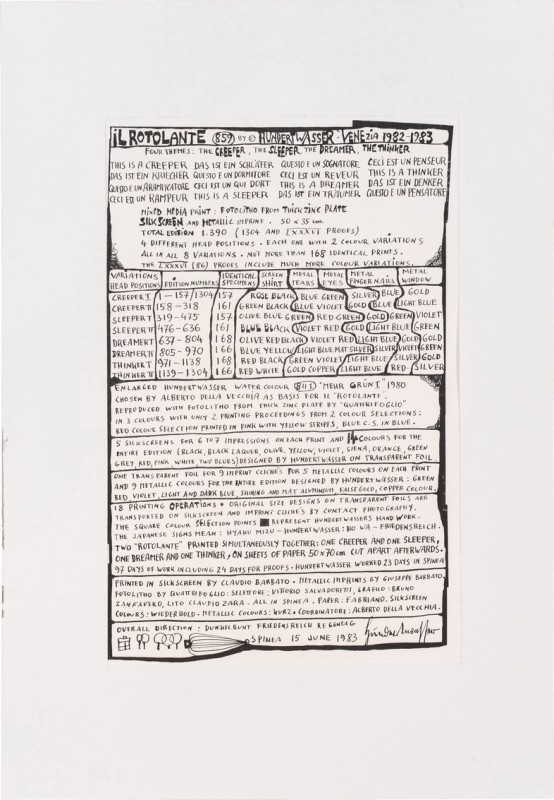 iL ROTOLANTE (859) BY © HUNDERTWASSER : VENEZIA 1982-1983
FOUR THEMES: THE CREEPER, THE SLEEPER, THE DREAMER, THE THINKER
THIS IS A CREEPER DAS IST EIN SCHLÄFER QUESTO E UN SOGNATORE CECI EST UN PENSEUR
DAS IST EIN KRIECHER QUESTO E UN DORMITORE CECI EST UN REVEUR THIS IS A THINKER
QUESTO E UN ARAMPICATORE CECI EST UN QUI DORT THIS IS A DREAMER DAS IST EIN DENKER
CECI EST UN RAMPEUR THIS IS A SLEEPER DAS IST EIN TRÄUMER QUESTO E UN PENSATORE
MIXED MEDIA PRINT: FOTOLITHO FROM THICK ZINC PLATE
SILKSCREEN AND METALLIC IMPRINT. 50 x 35 cm
TOTAL EDITION 1.390 (1304 AND LXXXVI PROOFS)
4 DIFFERENT HEAD POSITIONS. EACH ONE WITH 2 COLOUR VARIATIONS
ALL IN ALL 8 VARIATIONS. NOT MORE THAN 168 IDENTICAL PRINTS.
THE LXXXVI (86) PROOFS INCLUDE MUCH MORE COLOUR VARIATIONS.
VARIATIONS HEAD POSITIONS EDITION NUMBERS IDENTICAL SPECIMENS SCREEN SHIRT METAL TEARS METAL EYES METAL FINGERNAILS METAL WINDOW
CREEPER I 1-157/1304 157 ROSE BLACK BLUE GREEN SILVER BLUE GOLD
CREEPER II 158-318 161 GREEN BLACK BLUE VIOLET GOLD BLUE LIGHT BLUE
SLEEPER I 319-475 157 OLIVE BLUE GREEN RED GREEN GOLD GREEN VIOLET
SLEEPER II 476-636 161 BLUE BLACK VIOLET RED GOLD LIGHT BLUE GREEN
DREAMER I 637-804 168 OLIVE RED BLACK VIOLET RED LIGHT BLUE GOLD GOLD
DREAMER II 805-970 166 BLUE YELLOW LIGHT BLUE MAT SILVER SILVER VIOLET GREEN
THINKER I 971-1138 168 RED BLACK GREEN VIOLET LIGHT BLUE SILVER GOLD
THINKER II 1139-1304 166 RED WHITE GOLD COPPER LIGHT BLUE RED SILVER
ENLARGED HUNDERTWASSER WATER COLOUR "MEHR GRÜN I" 1980
CHOSEN BY ALBERTO DELLA VECCHIA AS BASIS FOR IL "ROTOLANTE".
REPRODUCED WITH FOTOLITHO FROM THICK ZINC PLATE BY "QUATRIFOGLIO"
IN 3 COLOURS WITH ONLY 2 PRINTING PROCEEDINGS FROM 2 COLOUR SELECTIONS:
RED COLOUR SELECTION PRINTED IN PINK WITH YELLOW STRIPES, BLUE C.S. IN BLUE.
5 SILKSCREENS FOR 6 TO 7 IMPRESSIONS ON EACH PRINT AND 14 COLOURS FOR THE
ENTIRE EDITION (BLACK, BLACK LAQUER, OLIVE, YELLOW, VIOLET, SIENA, ORANGE, GREEN
GREY, RED, PINK WHITE TWO BLUES) DESIGNED BY HUNDERTWASSER ON TRANSPARENT FOIL
ONE TRANSPARENT FOIL FOR 9 IMPRINT CLICHÉS FOR 5 METALLIC COLOURS ON EACH PRINT
AND 9 METALLIC COLOURS FOR THE ENTIRE EDITION DESIGNED BY HUNDERTWASSER: GREEN
RED, VIOLET, LIGHT AND DARK BLUE, SHINING AND MAT ALUMINIUM, FALSE GOLD, COPPER COLOUR.
18 PRINTING OPERATIONS • ORIGINAL SIZE DESIGNS ON TRANSPARENT FOILS ARE
TRANSPORTED ON SILKSCREEN AND IMPRINT CLICHÉS BY CONTACT PHOTOGRAPHY.
THE SQUARE COLOUR SELECTION POINTS REPRESENT HUNDERTWASSERS HAND WORK.
THE JAPANESE SIGNS MEAN: HYAKU MIZU - HUNDERTWASSER: HO WA - FRIEDENSREICH.
TWO "ROTOLANTE" PRINTED SIMULTANEOUSLY TOGETHER: ONE CREEPER AND ONE SLEEPER,
ONE DREAMER AND ONE THINKER, ON SHEETS OF PAPER 50x70 cm CUT APART AFTERWARDS.
97 DAYS OF WORK INCLUDING 24 DAYS FOR PROOFS. HUNDERTWASSER WORKED 23 DAYS IN SPINEA
PRINTED IN SILKSCREEN BY CLAUDIO BARBATO. METALLIC IMPRINTS BY GIUSEPPE BARBATO.
FOTOLITHO BY QUATRIFOGLIO: SELETTORE: VITTORIO SALVADORETTI, GRAFICO: BRUNO
ZANFAVERO, LITO CLAUDIO ZARA. ALL IN SPINEA. PAPER: FABRIANO. SILKSCREEN
COLOURS: WIEDERHOLD. METALLIC COLOURS: KURZ. COORDINATORE: ALBERTO DELLA VECCHIA.
OVERALL DIRECTION: DUNKELBUNT FRIEDENSREICH REGENTAG
SPINEA 15 JUNE 1983 Hundertwasser